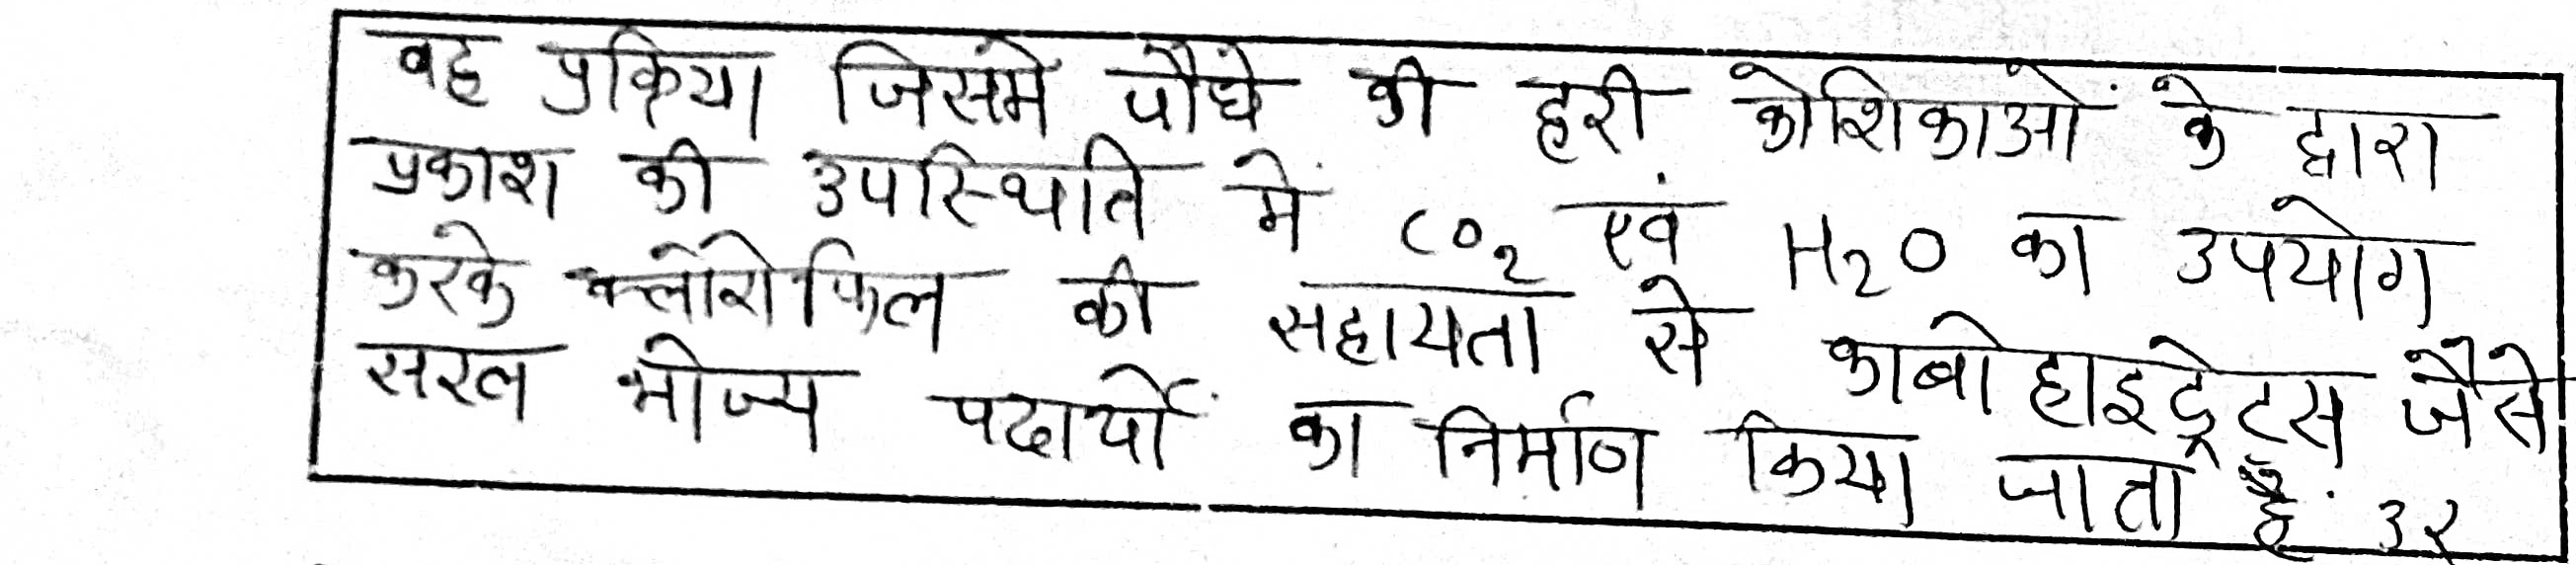 वह प्रक्रिया जिसमें पौधे की हरी कोशिकाओं के द्वारा
प्रकाश की उपस्थिति में CO₂ एवं H₂O का उपयोग
करके क्लोरोफिल की सहायता से काबोहाइड्रेट्स जैसे
सरल भोज्य पदार्थों का निर्माण किया जाता है